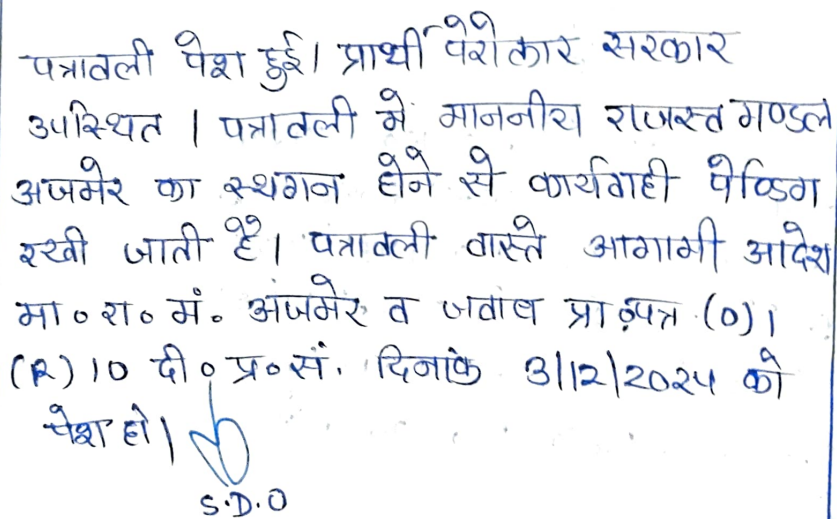 पत्रावली पेश हुई। प्रार्थी पैरोकार सरकार
उपस्थित। पत्रावली में माननीय राजस्व मण्डल
अजमेर का स्थगन होने से कार्यवाही पेण्डिग
रखी जाती है। पत्रावली वास्ते आगामी आदेश
मा० रा० मं० अजमेर व जवाब प्रा०पत्र (0)1
(R) 10 दी० प्र० सं. दिनांक 3/12/2024 को
पेश हो।
S.D.O